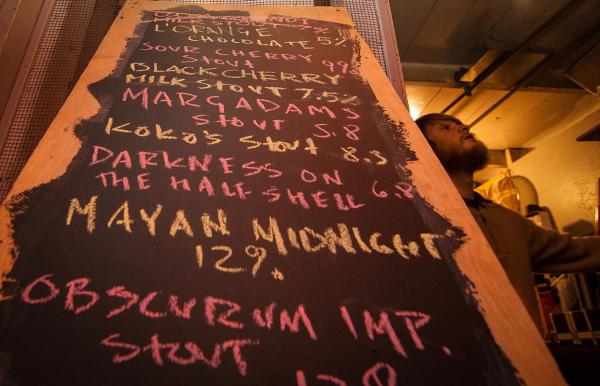 L'ORANGE
CHOCOLATE 5%
SOUR CHERRY
STOUT 99
BLACK CHERRY
MILK STOUT 7.5%
MARGADAMS
STOUT 5.8
KOKO'S STOUT 8.3
DARKNESS ON
THE HALF-SHELL 6.8
MAYAN MIDNIGHT
12%
OBSCURUM IMP.
STOUT